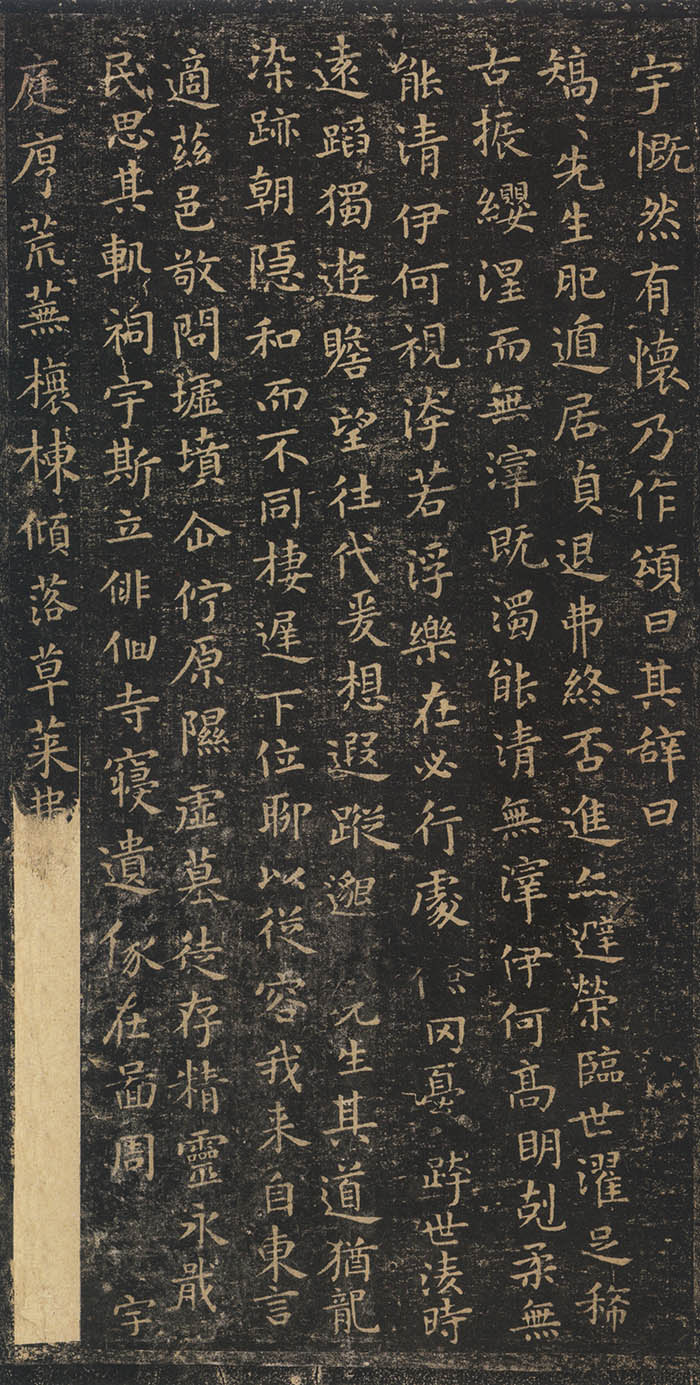 宇慨然有懷乃作頌曰其辞曰
矯〻先生肥遁居貞退弗終否進亦避榮臨世濯足稀
古振纓涅而無滓既濁能清無滓伊何高明剋柔無
能清伊何視洿若浮樂在必行處儉罔憂跨世淩時
遠蹈獨遊瞻望往代爰想遐蹤邈先生其道猶龍
染跡朝隐和而不同棲遲下位聊以從容我来自東言
適茲邑敬問墟墳企佇原隰虚墓徒存精靈永戢
民思其軌祠宇斯立俳佪寺寝遺像在啚周宇
庭序荒蕪榱棟傾落草莱弗